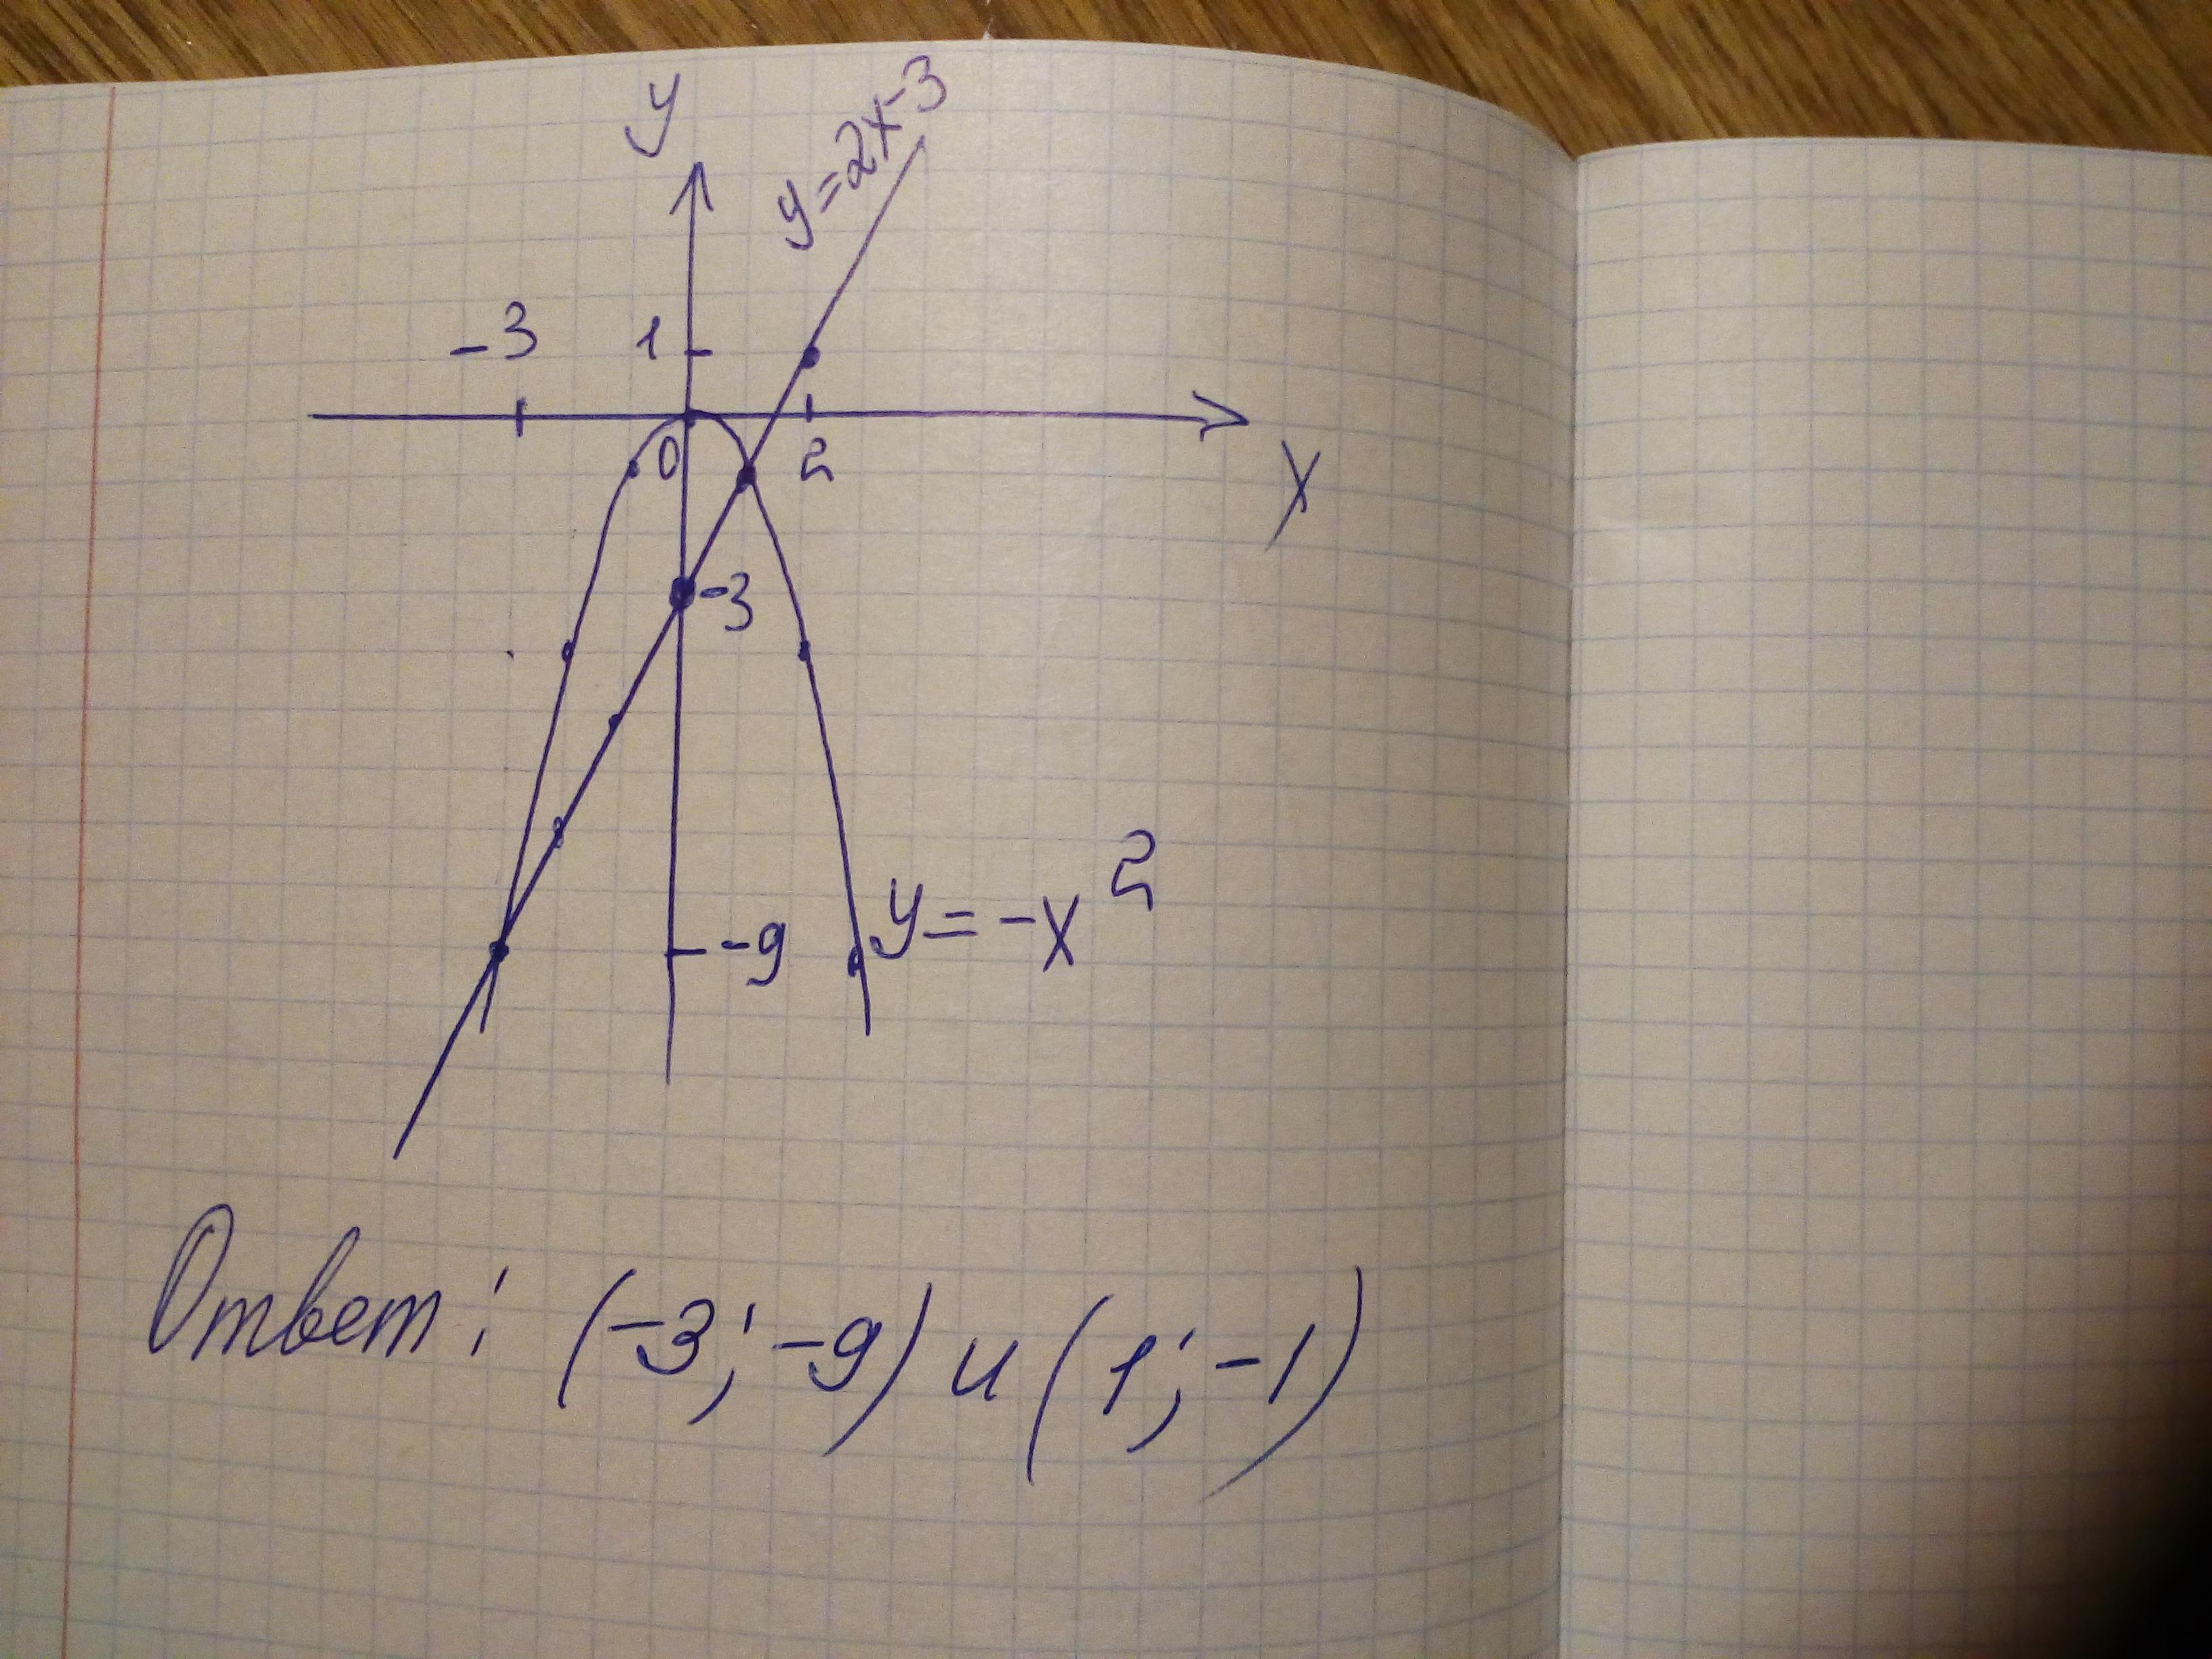 y
y=2x-3
-3 1
0 2
x
-3
y=-x²
-9
Ответ: (-3; -9) и (1; -1)